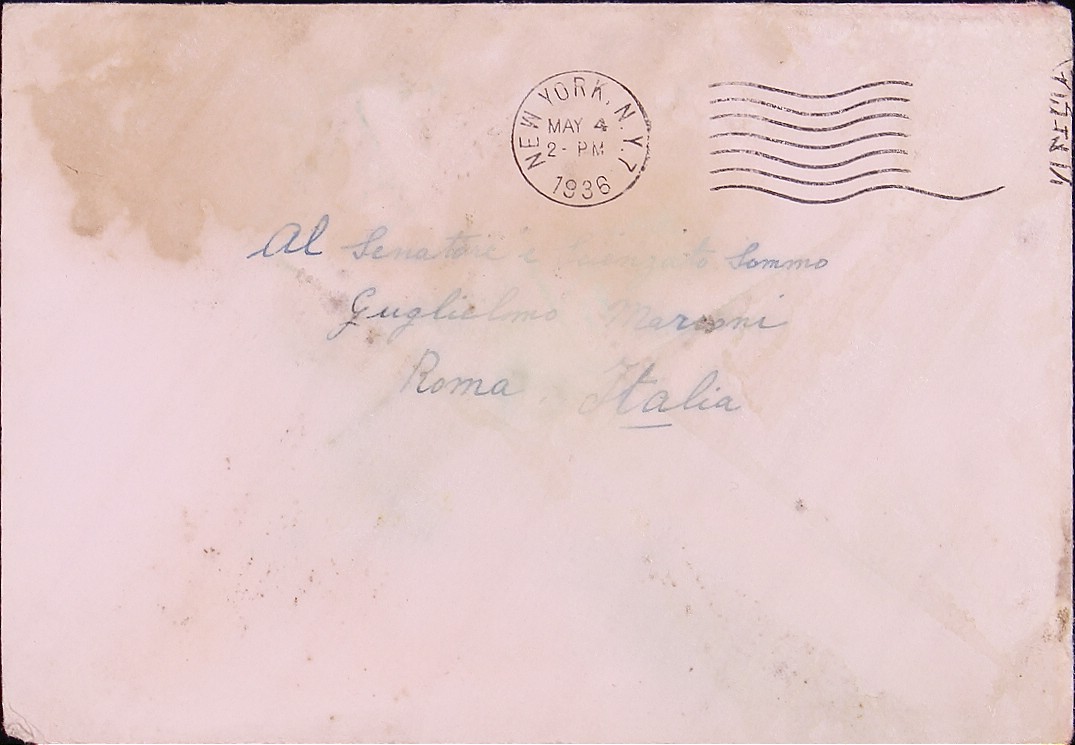 NEW YORK, N.Y. 7
MAY 4
2- PM
1936
Al Senatore e Scienziato Sommo
Guglielmo Marconi
Roma. Italia